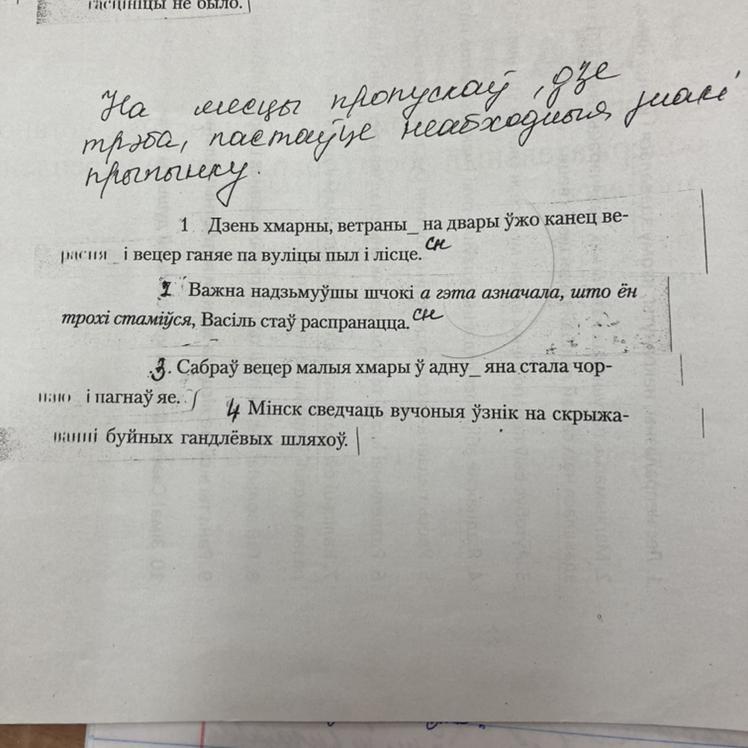 гасцініцы не было.
На месцы пропускаў, дзе
трэба, пастаўце неабходныя знакі
прыпынку.
1 Дзень хмарны, ветраны_ на двары ўжо канец ве-
расня_ і вецер ганяе па вуліцы пыл і лісце. сн
2 Важна надзьмуўшы шчокі а гэта азначала, што ён
трохі стаміўся, Васіль стаў распранацца. сн
3. Сабраў вецер малыя хмары ў адну_ яна стала чор-
наю_ і пагнаў яе.
4 Мінск сведчаць вучоныя ўзнік на скрыжа-
ванні буйных гандлёвых шляхоў.